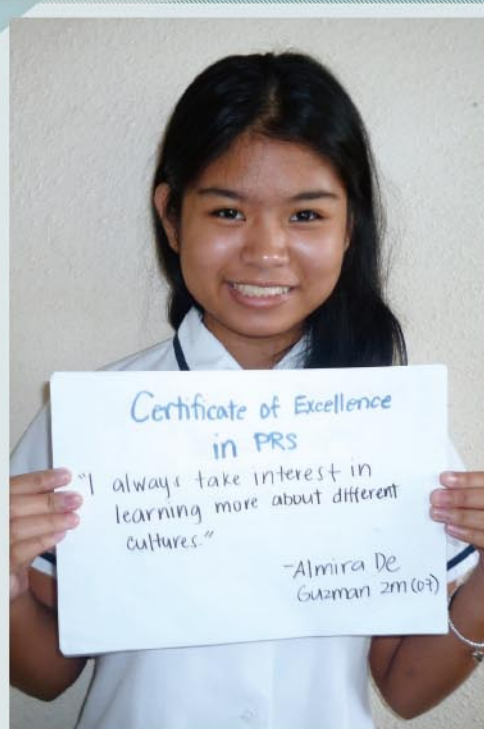 Certificate of Excellence
in PRS
"I always take interest in
learning more about different
cultures."
-Almira De
Guzman 2m(07)